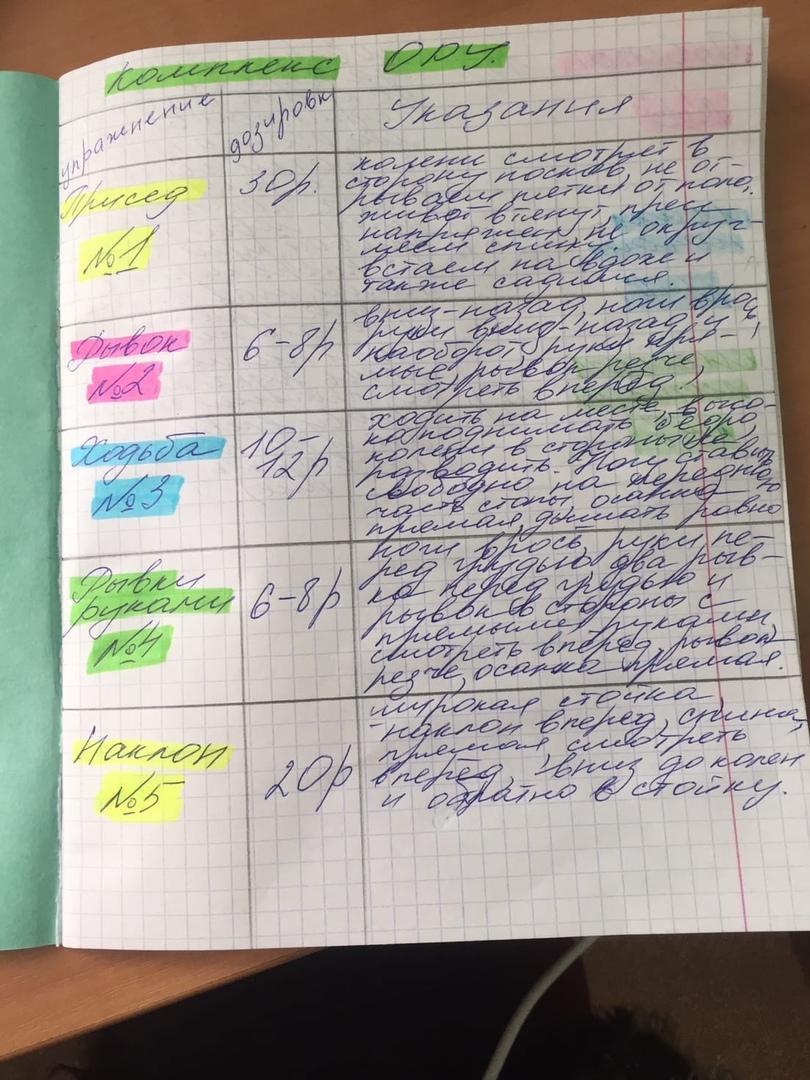 Комплекс ОРУ.
упражнение дозировка Указания
Присед
№1
30р.
колени смотрет в
сторону носков, не от-
рываем пятки от пола,
живот втянут, прес
напряжен, не округ-
ляем спину,
встаем на вдохе и
также садимся.
Рывок
№2
6-8р
вниз-назад, ноги врось
руки вниз-назад, и
наоборот, руки пря-
мые, рывок резче,
смотреть вперед,
Ходьба
№3
10-
12р
ходить на месте, высо-
ко поднимать бедро,
колени в стороны не
разводить. Ноги ставить
свободно на переднюю
часть стопы, осанка
прямая, дышать ровно
Рывки
руками
№4
6-8р
ноги врось, руки пе-
ред грудью, два рыв-
ка перед грудью и
рывок в стороны с
прямыми руками,
смотреть вперед, рывок
резче, осанка прямая.
Наклон
№5
20р
широкая стойка
-наклон вперед, спина
прямая, смотреть
вперед, вниз до колен
и обратно в стойку.